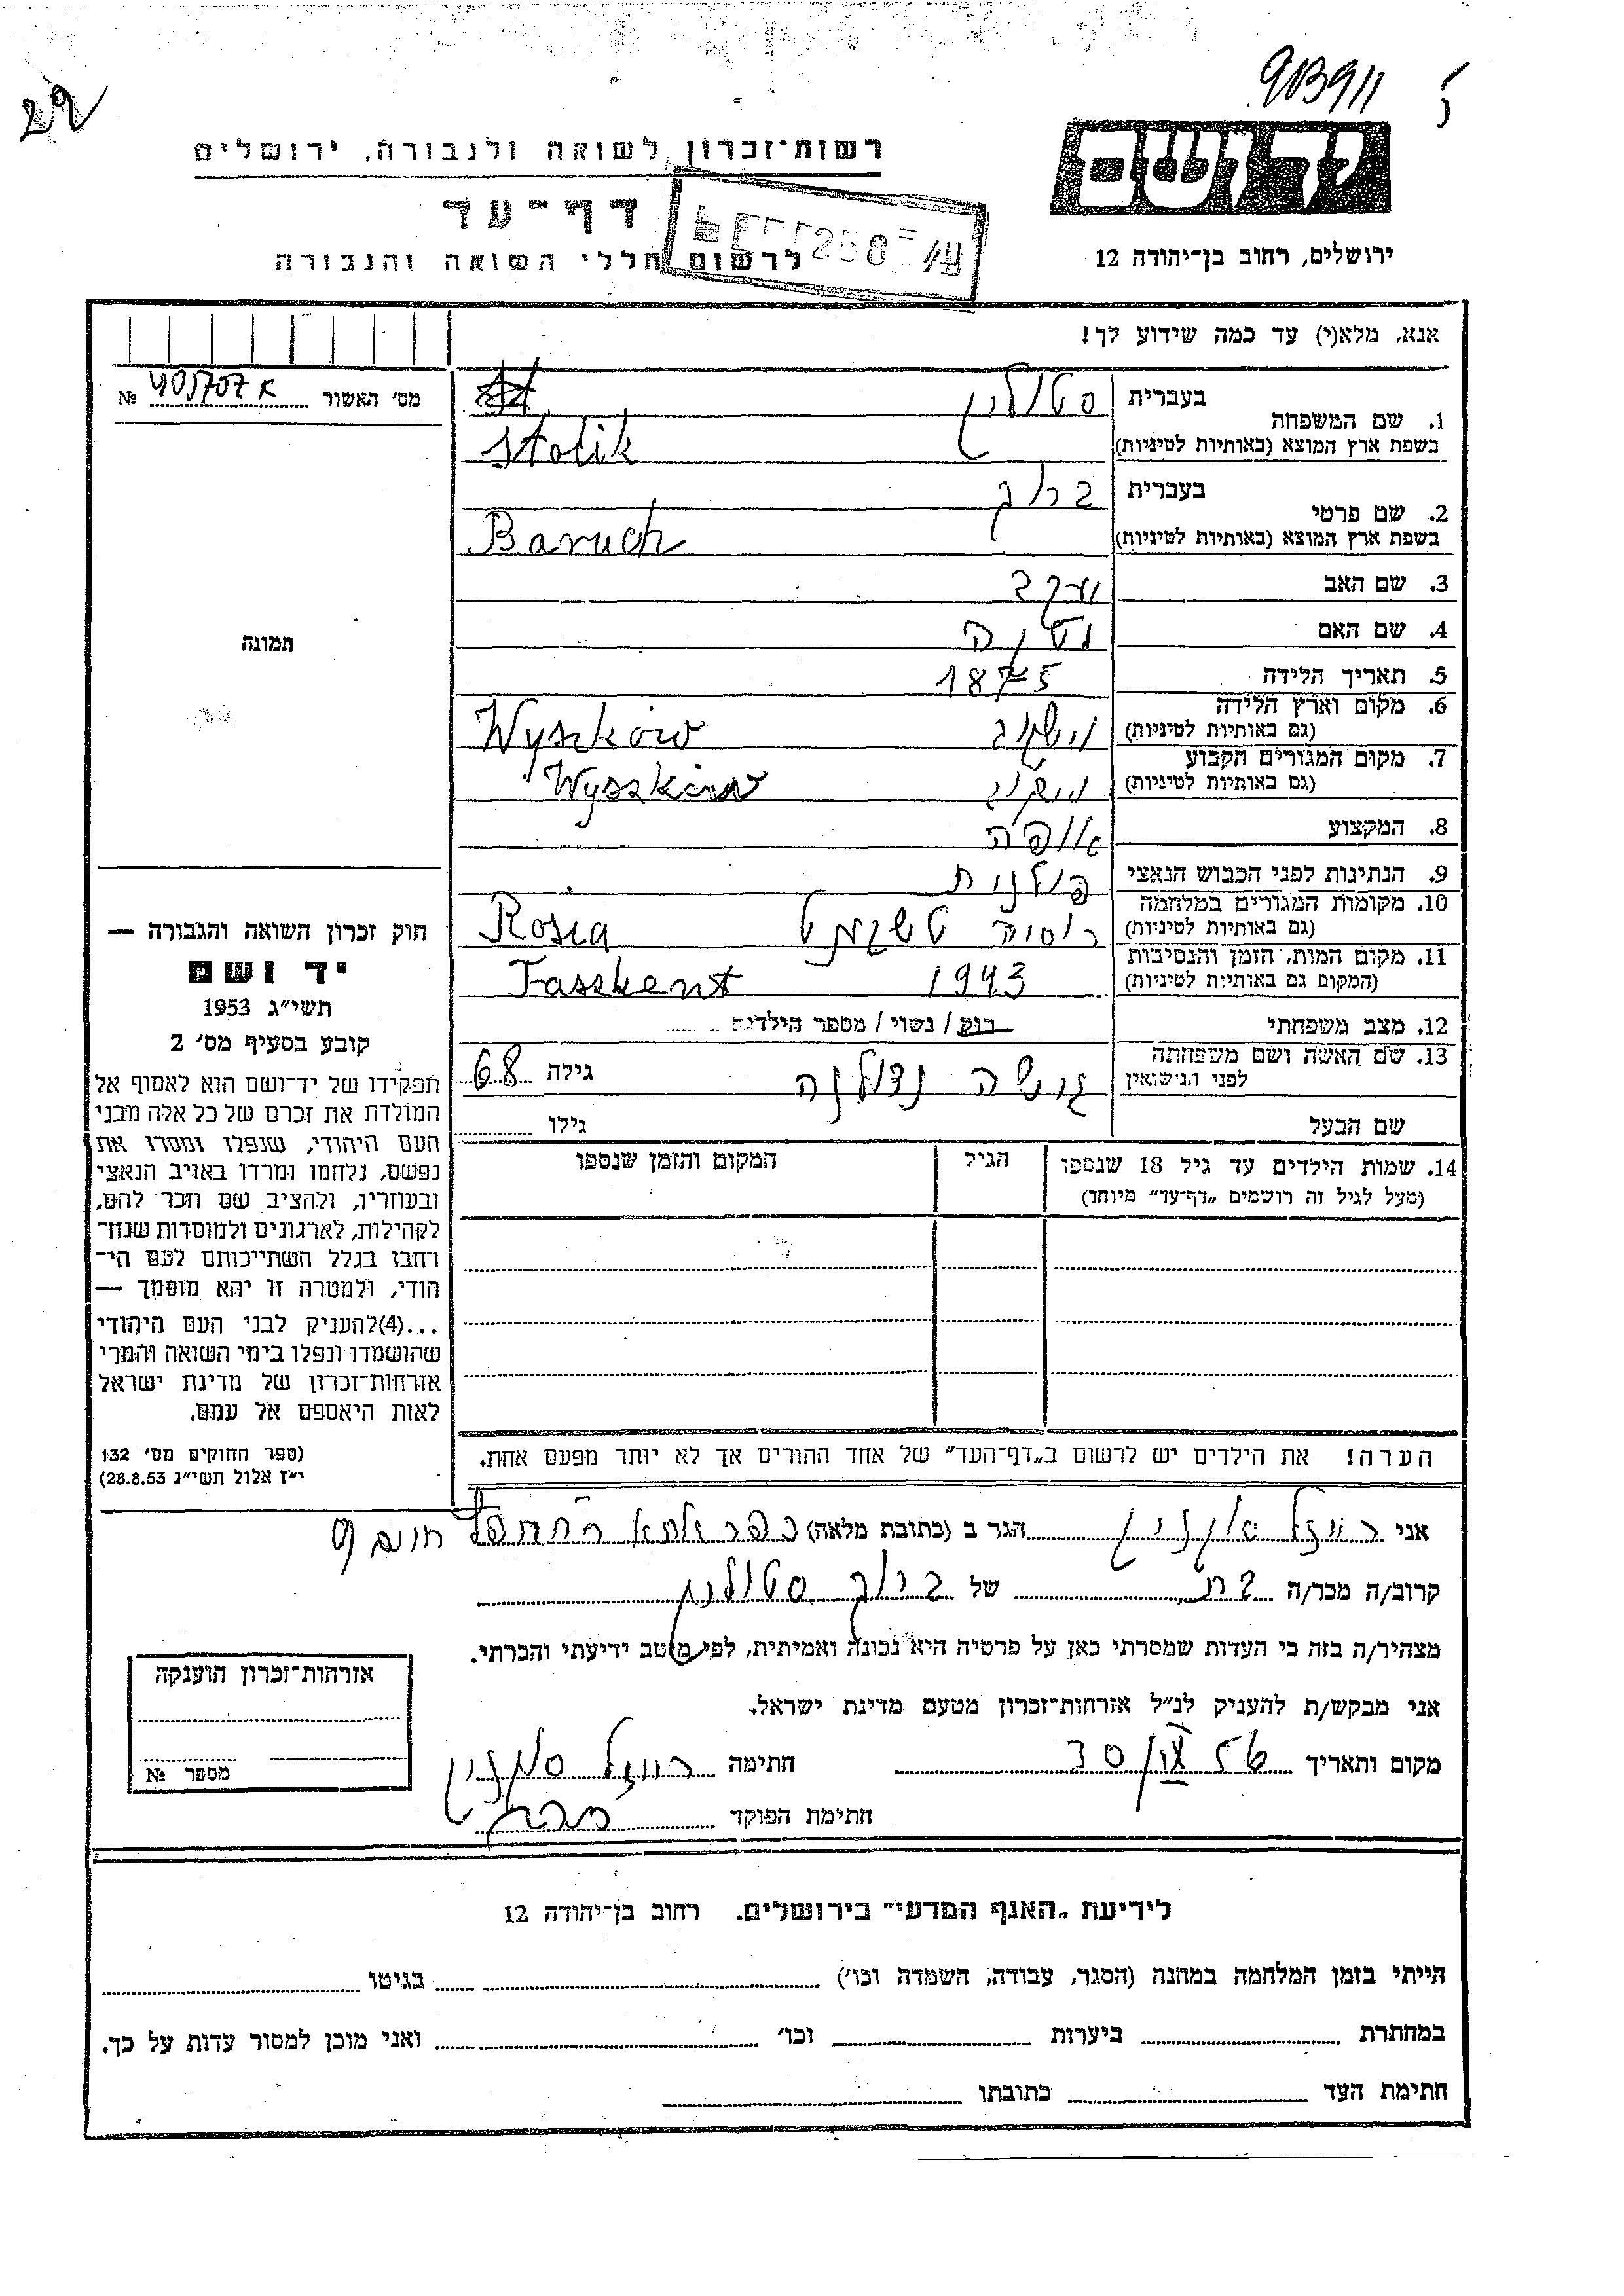 903911
29
רשות־זכרון לשואה ולגבורה, ירושלים
יד ושם
דף־עד
לרשום חללי השואה והגבורה
ירושלים, רחוב בן־יהודה 12
אנא, מלא(י) עד כמה שידוע לך!
מס׳ האשור № 401707 א
1. שם המשפחה
בעברית
בשפת ארץ המוצא (באותיות לטיניות) Stolik
2. שם פרטי
בעברית ברוך
בשפת ארץ המוצא (באותיות לטיניות) Baruch
3. שם האב יעקב
4. שם האם
5. תאריך הלידה 1875
6. מקום וארץ הלידה
(גם באותיות לטיניות) וישקוב Wyszków
7. מקום המגורים הקבוע
(גם באותיות לטיניות) וישקוב Wyszków
8. המקצוע אופה
9. הנתינות לפני הכבוש הנאצי פולנית
10. מקומות המגורים במלחמה
(גם באותיות לטיניות) רוסיה טשקנט Rosia
11. מקום המות, הזמן והנסיבות
(המקום גם באותיות לטיניות) 1943 Taszkent
12. מצב משפחתי רוק / נשוי / מספר הילדים
13. שם האשה ושם משפחתה
לפני הנישואין גילה 68
שם הבעל גילו
14. שמות הילדים עד גיל 18 שנספו
(מעל לגיל זה רושמים „דף־עד״ מיוחד)
הגיל
המקום והזמן שנספו
הערה! את הילדים יש לרשום ב„דף־העד״ של אחד ההורים אך לא יותר מפעם אחת.
תמונה
חוק זכרון השואה והגבורה —
יד ושם
תשי״ג 1953
קובע בסעיף מס׳ 2
תפקידו של יד־ושם הוא לאסוף אל
המולדת את זכרם של כל אלה מבני
העם היהודי, שנפלו ומסרו את
נפשם, נלחמו ומרדו באויב הנאצי
ובעוזריו, ולהציב שם וזכר להם,
לקהילות, לארגונים ולמוסדות שנח־
רבו בגלל השתייכותם לעם הי־
הודי, ולמטרה זו יהא מוסמך —
...(4)להעניק לבני העם היהודי
שהושמדו ונפלו בימי השואה והמרי
אזרחות־זכרון של מדינת ישראל
לאות היאספם אל עמם.
(ספר החוקים מס׳ 132
י״ז אלול תשי״ג 28.8.53)
אני הגר ב (כתובת מלאה)
קרוב/ה מכר/ה בת של ברוך
מצהיר/ה בזה כי העדות שמסרתי כאן על פרטיה היא נכונה ואמיתית, לפי מיטב ידיעתי והכרתי.
אני מבקש/ת להעניק לנ״ל אזרחות־זכרון מטעם מדינת ישראל.
מקום ותאריך חתימה
חתימת הפוקד
אזרחות־זכרון הוענקה
מספר №
לידיעת „האגף המדעי״ בירושלים. רחוב בן־יהודה 12
הייתי בזמן המלחמה במחנה (הסגר, עבודה, השמדה וכו׳) בגיטו
במחתרת ביערות וכו׳ ואני מוכן למסור עדות על כך.
חתימת העד כתובתו